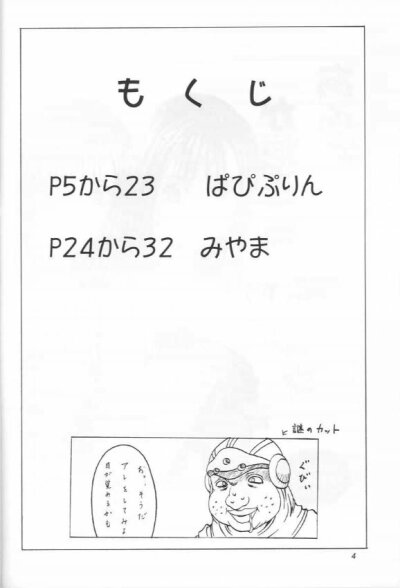 もくじ
P5から23 ぱぴぷりん
P24から32 みやま
と謎のカット
ぐびぃ
あ、そうだ
アレをしてみよ
目が覚めるかも
4